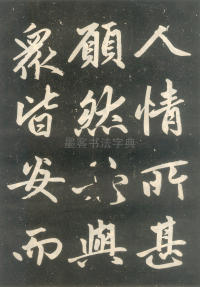 人情所甚
願然與
衆皆安而
墨客书法字典